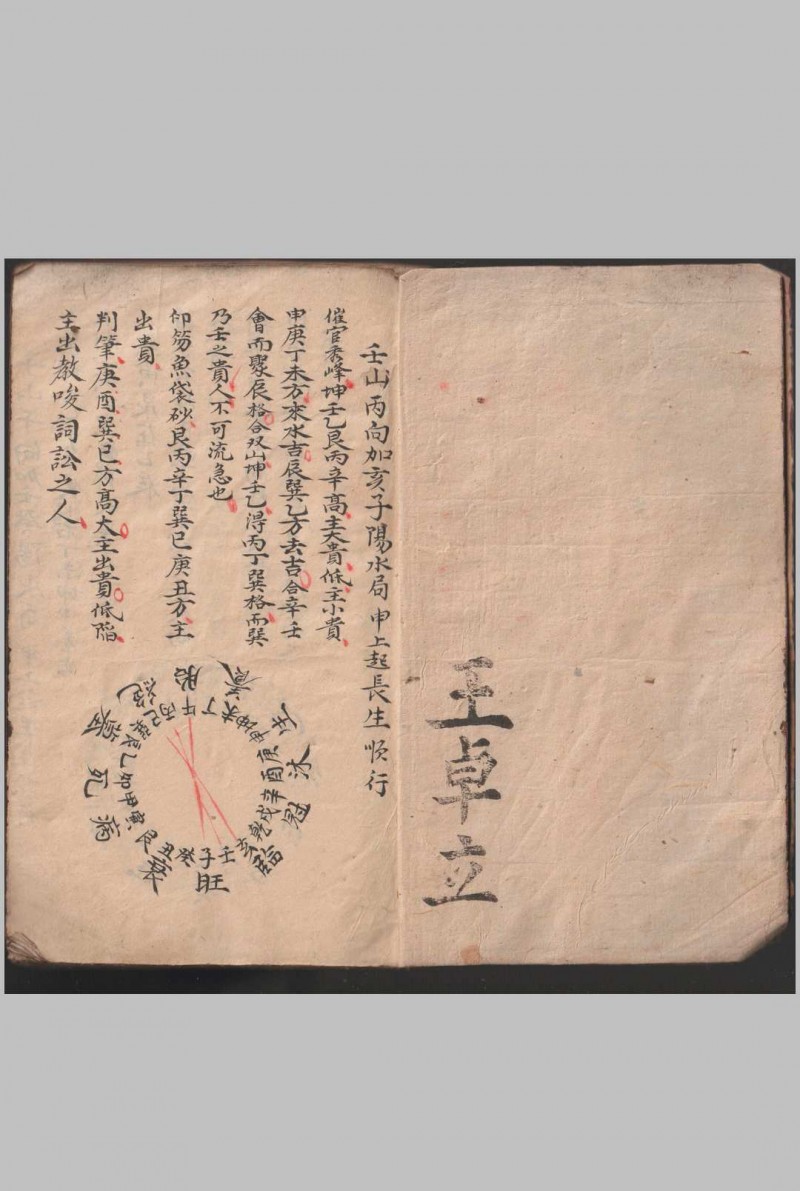 王卓立
壬山丙向加亥子陽水局申上起長生順行
催官秀峰坤壬乙艮丙辛高主大貴低主小貴
申庚丁未方來水吉辰巽乙方去吉合辛壬
會而聚辰格合双山坤壬乙得丙丁巽格而巽
乃壬之貴人不可流急也
仰笏魚袋砂艮丙辛丁巽巳庚丑方主
出貴
判筆庚酉巽巳方高大主出貴低陷
主出教唆詞訟之人
養生沐冠臨旺衰病死墓絕胎
壬子癸丑艮寅甲卯乙辰巽巳丙午丁未坤申庚酉辛戌乾亥